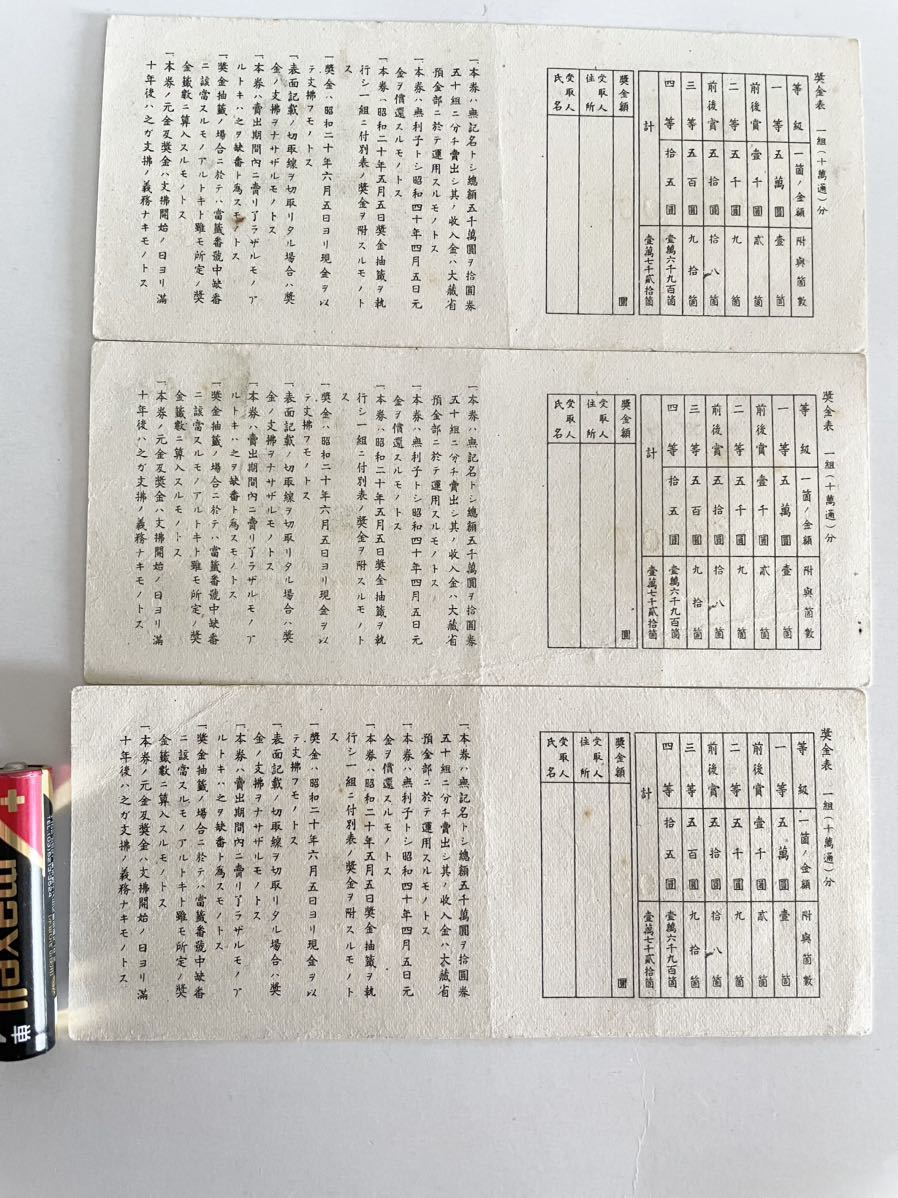 奬金表 一組(十萬通)分
等級 一箇ノ金額 附與箇數
一等 五萬圓 壹箇
前後賞 壹千圓 貳箇
二等 五千圓 九箇
前後賞 五拾圓 拾八箇
三等 五百圓 九拾箇
四等 拾五圓 壹萬六千九百箇
計 壹萬七千貳拾箇
奬金額 圓
受取人住所
受取人氏名
一、本券ハ無記名トシ總額五千萬圓ヲ拾圓券
五十組ニ分チ賣出シ其ノ收入金ハ大藏省
預金部ニ於テ運用スルモノトス
一、本券ハ無利子トシ昭和四十年四月五日元
金ヲ償還スルモノトス
一、本券ハ昭和二十年五月五日奬金抽籤ヲ執
行シ一組ニ付別表ノ奬金ヲ附スルモノト
ス
一、奬金ハ昭和二十年六月五日ヨリ現金ヲ以
テ支拂フモノトス
一、表面記載ノ切取線ヲ切取リタル場合ハ奬
金ノ支拂ヲナサザルモノトス
一、本券ハ賣出期間内ニ賣リ了ラザルモノア
ルトキハ之ヲ缺番ト爲スモノトス
一、奬金抽籤ノ場合ニ於テハ當籤番號中缺番
ニ該當スルモノアルトキト雖モ所定ノ奬
金籤數ニ算入スルモノトス
一、本券ノ元金及奬金ハ支拂開始ノ日ヨリ滿
十年後ハ之ガ支拂ノ義務ナキモノトス
奬金表 一組(十萬通)分
等級 一箇ノ金額 附與箇數
一等 五萬圓 壹箇
前後賞 壹千圓 貳箇
二等 五千圓 九箇
前後賞 五拾圓 拾八箇
三等 五百圓 九拾箇
四等 拾五圓 壹萬六千九百箇
計 壹萬七千貳拾箇
奬金額 圓
受取人住所
受取人氏名
一、本券ハ無記名トシ總額五千萬圓ヲ拾圓券
五十組ニ分チ賣出シ其ノ收入金ハ大藏省
預金部ニ於テ運用スルモノトス
一、本券ハ無利子トシ昭和四十年四月五日元
金ヲ償還スルモノトス
一、本券ハ昭和二十年五月五日奬金抽籤ヲ執
行シ一組ニ付別表ノ奬金ヲ附スルモノト
ス
一、奬金ハ昭和二十年六月五日ヨリ現金ヲ以
テ支拂フモノトス
一、表面記載ノ切取線ヲ切取リタル場合ハ奬
金ノ支拂ヲナサザルモノトス
一、本券ハ賣出期間内ニ賣リ了ラザルモノア
ルトキハ之ヲ缺番ト爲スモノトス
一、奬金抽籤ノ場合ニ於テハ當籤番號中缺番
ニ該當スルモノアルトキト雖モ所定ノ奬
金籤數ニ算入スルモノトス
一、本券ノ元金及奬金ハ支拂開始ノ日ヨリ滿
十年後ハ之ガ支拂ノ義務ナキモノトス
奬金表 一組(十萬通)分
等級 一箇ノ金額 附與箇數
一等 五萬圓 壹箇
前後賞 壹千圓 貳箇
二等 五千圓 九箇
前後賞 五拾圓 拾八箇
三等 五百圓 九拾箇
四等 拾五圓 壹萬六千九百箇
計 壹萬七千貳拾箇
奬金額 圓
受取人住所
受取人氏名
一、本券ハ無記名トシ總額五千萬圓ヲ拾圓券
五十組ニ分チ賣出シ其ノ收入金ハ大藏省
預金部ニ於テ運用スルモノトス
一、本券ハ無利子トシ昭和四十年四月五日元
金ヲ償還スルモノトス
一、本券ハ昭和二十年五月五日奬金抽籤ヲ執
行シ一組ニ付別表ノ奬金ヲ附スルモノト
ス
一、奬金ハ昭和二十年六月五日ヨリ現金ヲ以
テ支拂フモノトス
一、表面記載ノ切取線ヲ切取リタル場合ハ奬
金ノ支拂ヲナサザルモノトス
一、本券ハ賣出期間内ニ賣リ了ラザルモノア
ルトキハ之ヲ缺番ト爲スモノトス
一、奬金抽籤ノ場合ニ於テハ當籤番號中缺番
ニ該當スルモノアルトキト雖モ所定ノ奬
金籤數ニ算入スルモノトス
一、本券ノ元金及奬金ハ支拂開始ノ日ヨリ滿
十年後ハ之ガ支拂ノ義務ナキモノトス
maxell
単